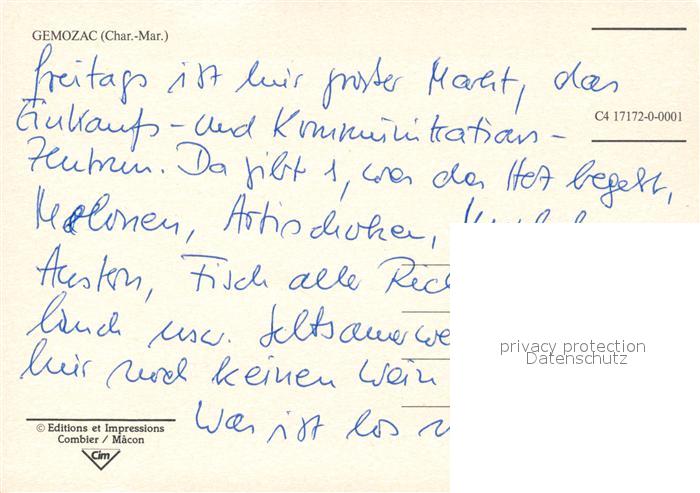 GEMOZAC (Char.-Mar.)
C4 17172-0-0001
Freitags ist hier großer Markt, das
Einkaufs- und Kommunikations-
Zentrum. Da gibt's, was das Herz begehrt,
Melonen, Artischoken,
Austern, Fisch aller
usw.
hier noch keinen Wein
Was ist los
privacy protection
Datenschutz
© Editions et Impressions
Combier / Mâcon
Cim